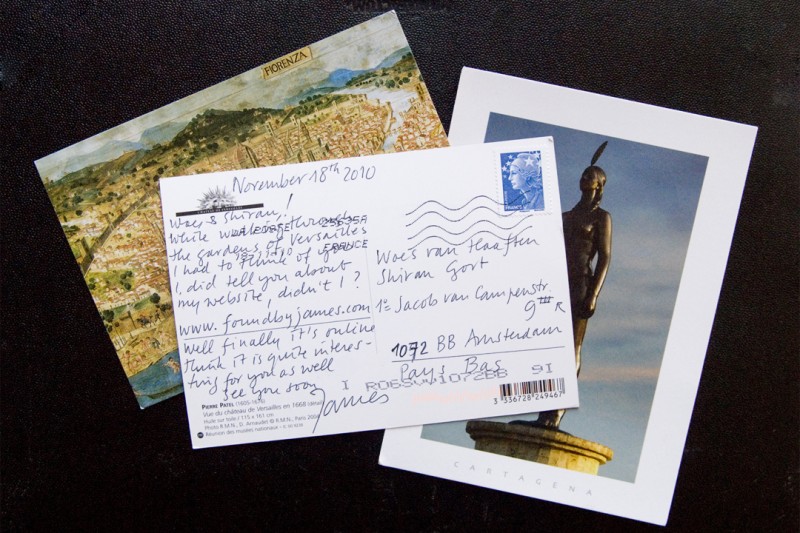 FIORENZA
November 18th 2010
Woes & Shiran!
While walking through
the gardens of Versailles
I had to think of you.
I did tell you about
my website, didn't I?
www.foundbyjames.com
Well finally it's online
think it is quite interes-
ting for you as well
See you soon
James
LA POSTE 25635A
FRANCE
FRANCE
Woes van Haaften
Shiran Gort
1e Jacob van Campenstr.
9 III R
1072 BB Amsterdam
Pays Bas
1072BB 9I
3 336728 249467
PIERRE PATEL (1605-1676)
Vue du château de Versailles en 1668 (détail)
Huile sur toile / 115 x 161 cm
Photo R.M.N.
Réunion des musées nationaux
CARTAGENA